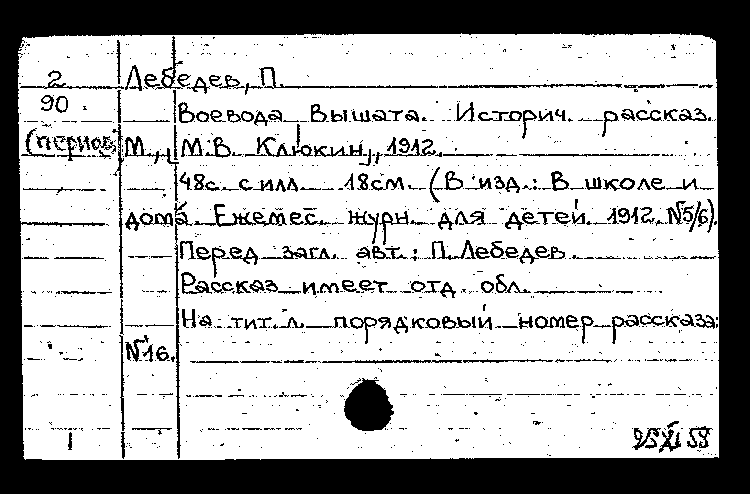 2 Лебедев, П.
90 Воевода Вышата. Историч. рассказ.
(период) М., "М.В. Клюкин", 1912.
48с. с илл. 18см. (В изд.: В школе и
дома. Ежемес. журн. для детей. 1912. №5/6).
Перед загл. авт.: П. Лебедев.
Рассказ имеет отд. обл.
На тит. л. порядковый номер рассказа:
№16.
1